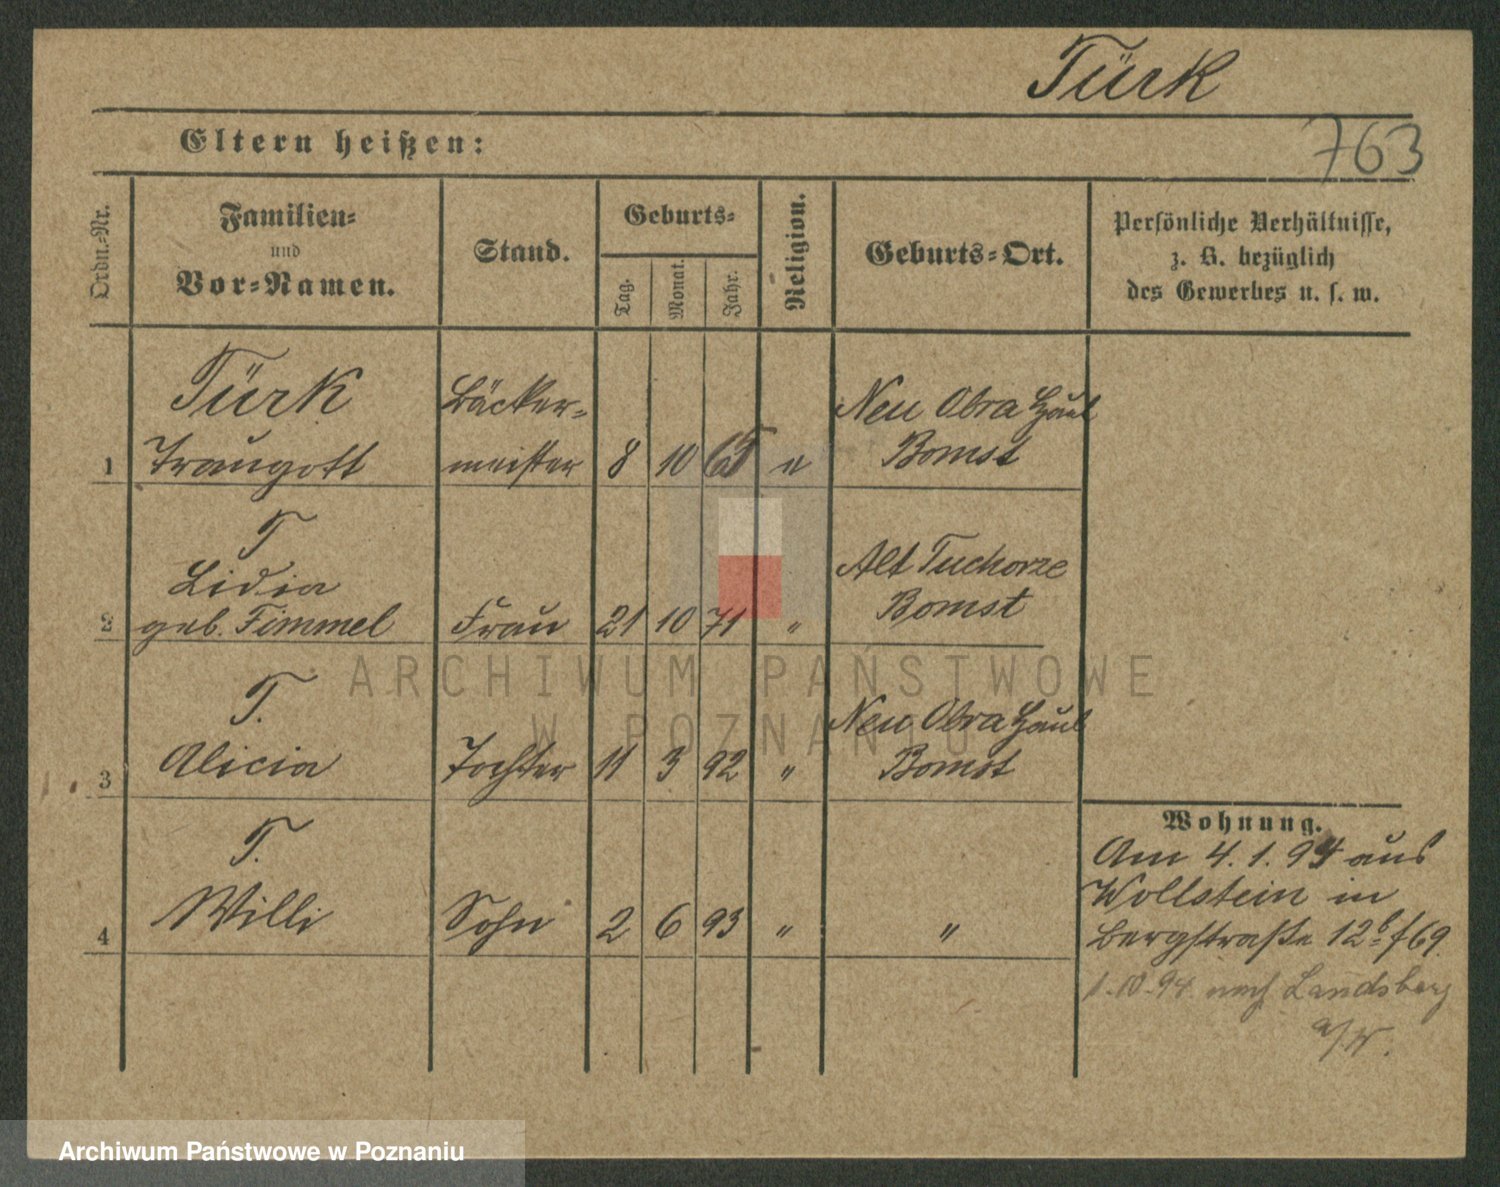 Türk
763
Eltern heißen:
Ordn.-Nr.
Familien-
und
Vor-Namen.
Stand.
Geburts-
Tag.
Monat.
Jahr.
Religion.
Geburts-Ort.
Persönliche Verhältnisse,
z. B. bezüglich
des Gewerbes u. s. w.
Türk
Bäcker-
Neu Obra Haul
1 Traugott meister 8 10 65 e Bomst
T
Lidia
Alt Tuchorze
Bomst
2 geb. Fimmel Frau 21 10 71 "
T.
Neu Obra Haul
3 Alicia Tochter 11 3 92 " Bomst
T.
4 Willi Sohn 2 6 93 " "
Wohnung.
Am 4.1.94 aus
Wollstein in
Bergstraße 12b f 69
1.10.94 nach Landsberg
a/W.
ARCHIWUM PAŃSTWOWE
W POZNANIU
Archiwum Państwowe w Poznaniu